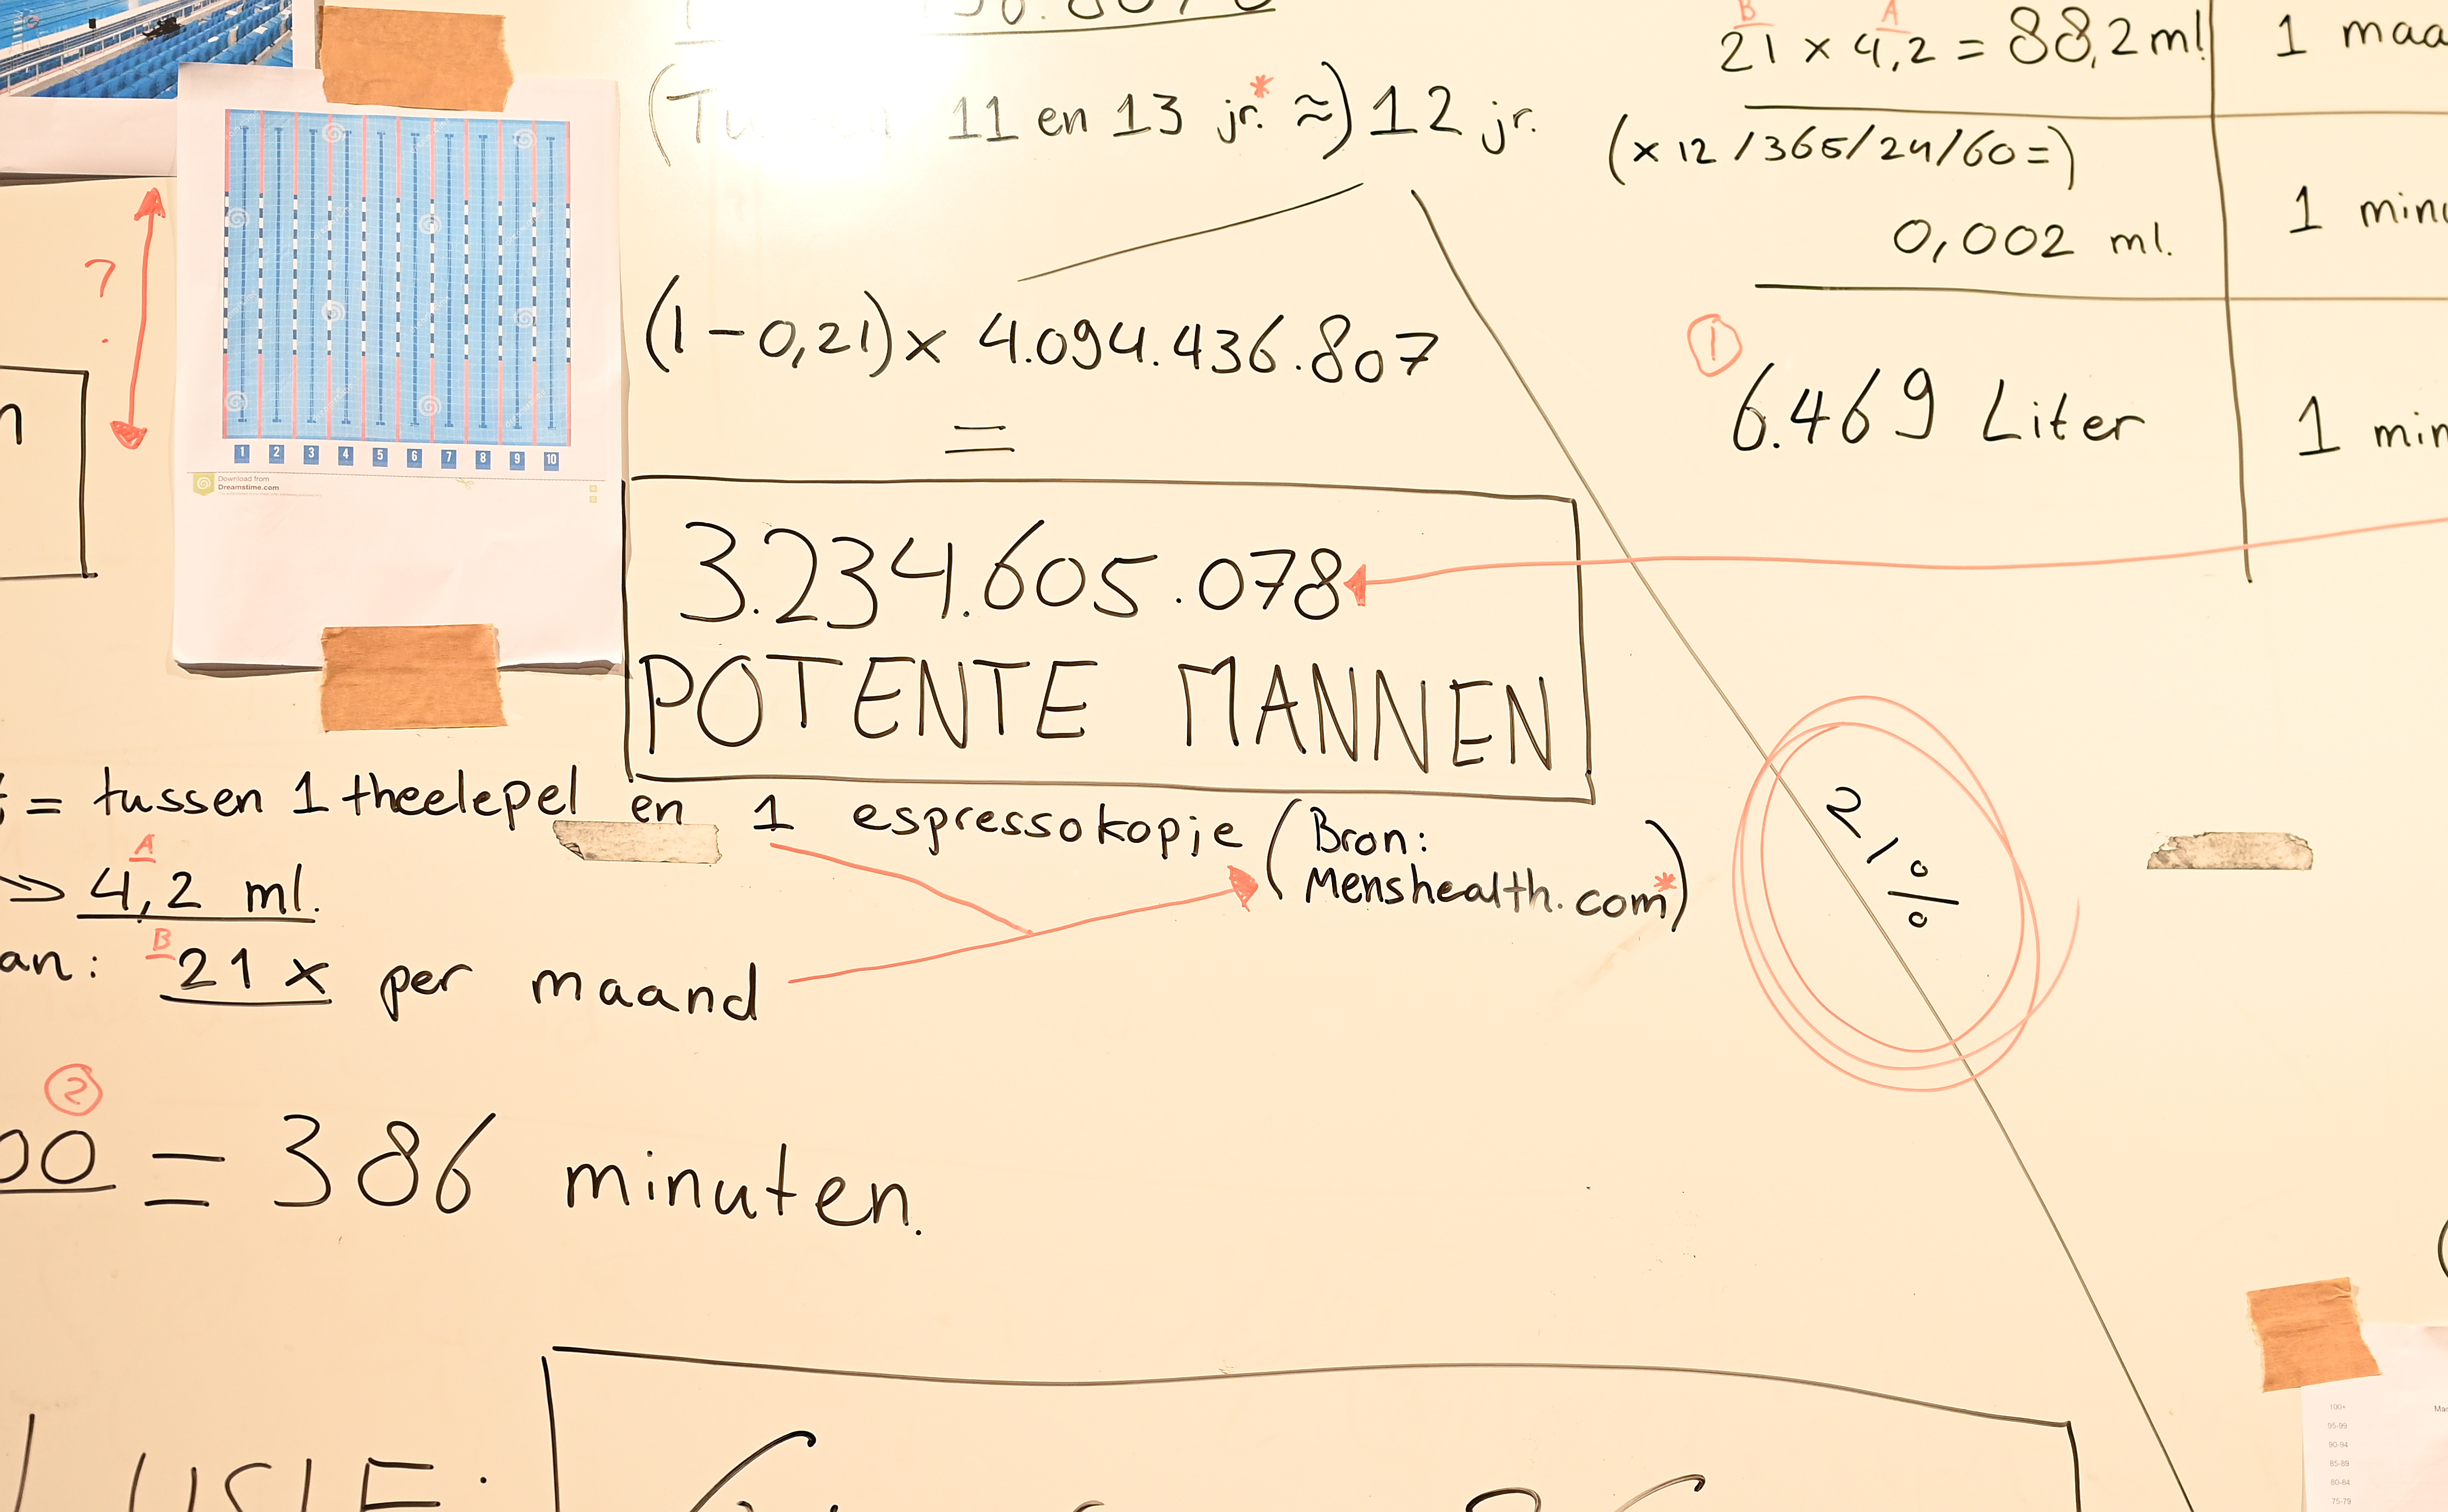 B A
21 x 4,2 = 88,2 ml
1
(× 12 /365/24/60=)
0,002 ml.
1
①
6.469 Liter
1
11 en 13 jr.* ≈) 12 jr.
(1-0,21) x 4.094.436.807
=
3.234.605.078
POTENTE MANNEN
?
1 2 3 4 5 6 7 8 9 10
Download from
Dreamstime.com
= tussen 1 theelepel en 1 espressokopje (Bron:
Menshealth.com*)
A
4,2 ml.
B
21 x per maand
21%
②
00 = 386 minuten.
100+
95-99
90-94
85-89
80-84
75-79